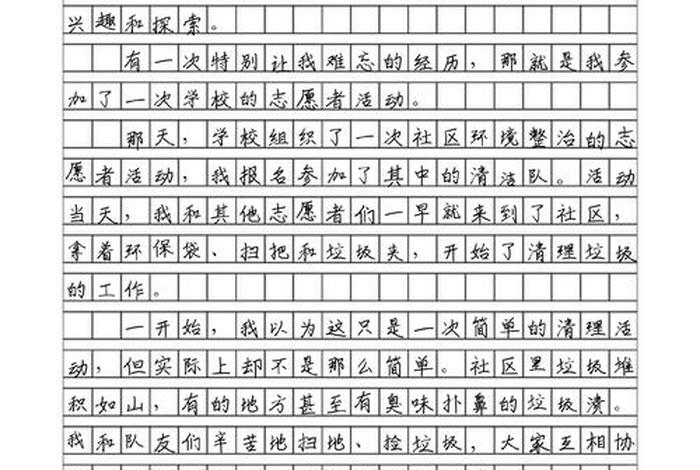 兴趣和探索。
有一次特别让我难忘的经历，那就是我参
加了一次学校的志愿者活动。
那天，学校组织了一次社区环境整治的志
愿者活动，我报名参加了其中的清洁队。活动
当天，我和其他志愿者们一早就来到了社区，
拿着环保袋、扫把和垃圾夹，开始了清理垃圾
的工作。
一开始，我以为这只是一次简单的清理活
动，但实际上却不是那么简单。社区里垃圾堆
积如山，有的地方甚至有臭味扑鼻的垃圾渍。
我和队友们辛苦地扫地、捡垃圾，大家互相协